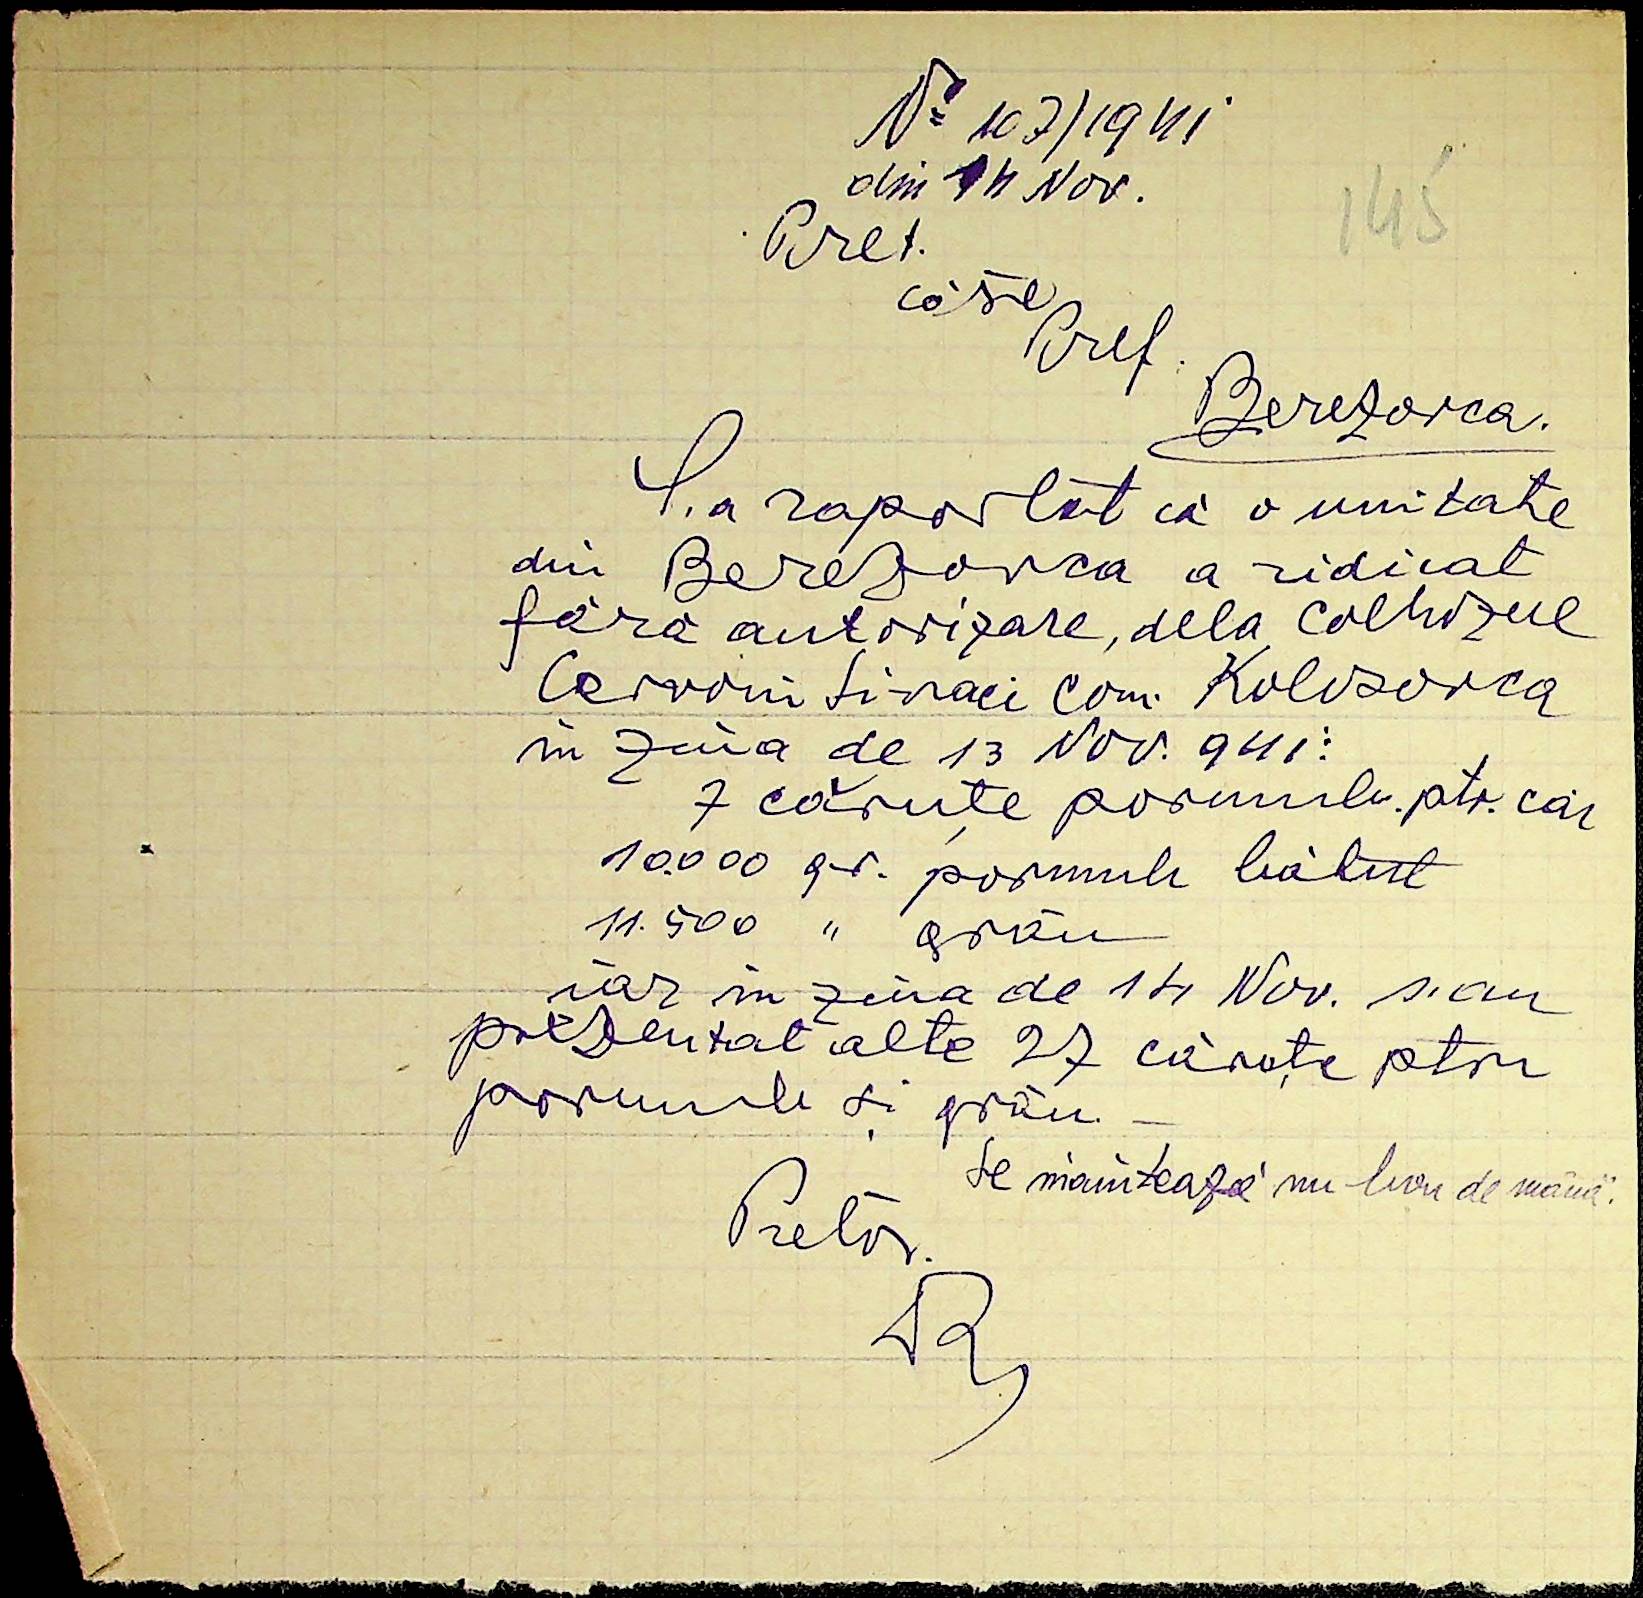 Nº 107/1941
din 14 Nov.
145
Pret.
către
Pref.
Berezovca.
S.a raportat că o unitate
din Berezovca a ridicat
fără autorizare, dela colhozul
com. Kolosovca
in ziua de 13 Nov. 941:
7 căruțe porumb. ptr. cai
10.000 gr. porumb bătut
11.500 " grâu
iar in ziua de 14 Nov. s.au
prezentat alte 27 căruțe ptru
porumb și grâu. —
Se inaintează un bon de mână.
Pretor.